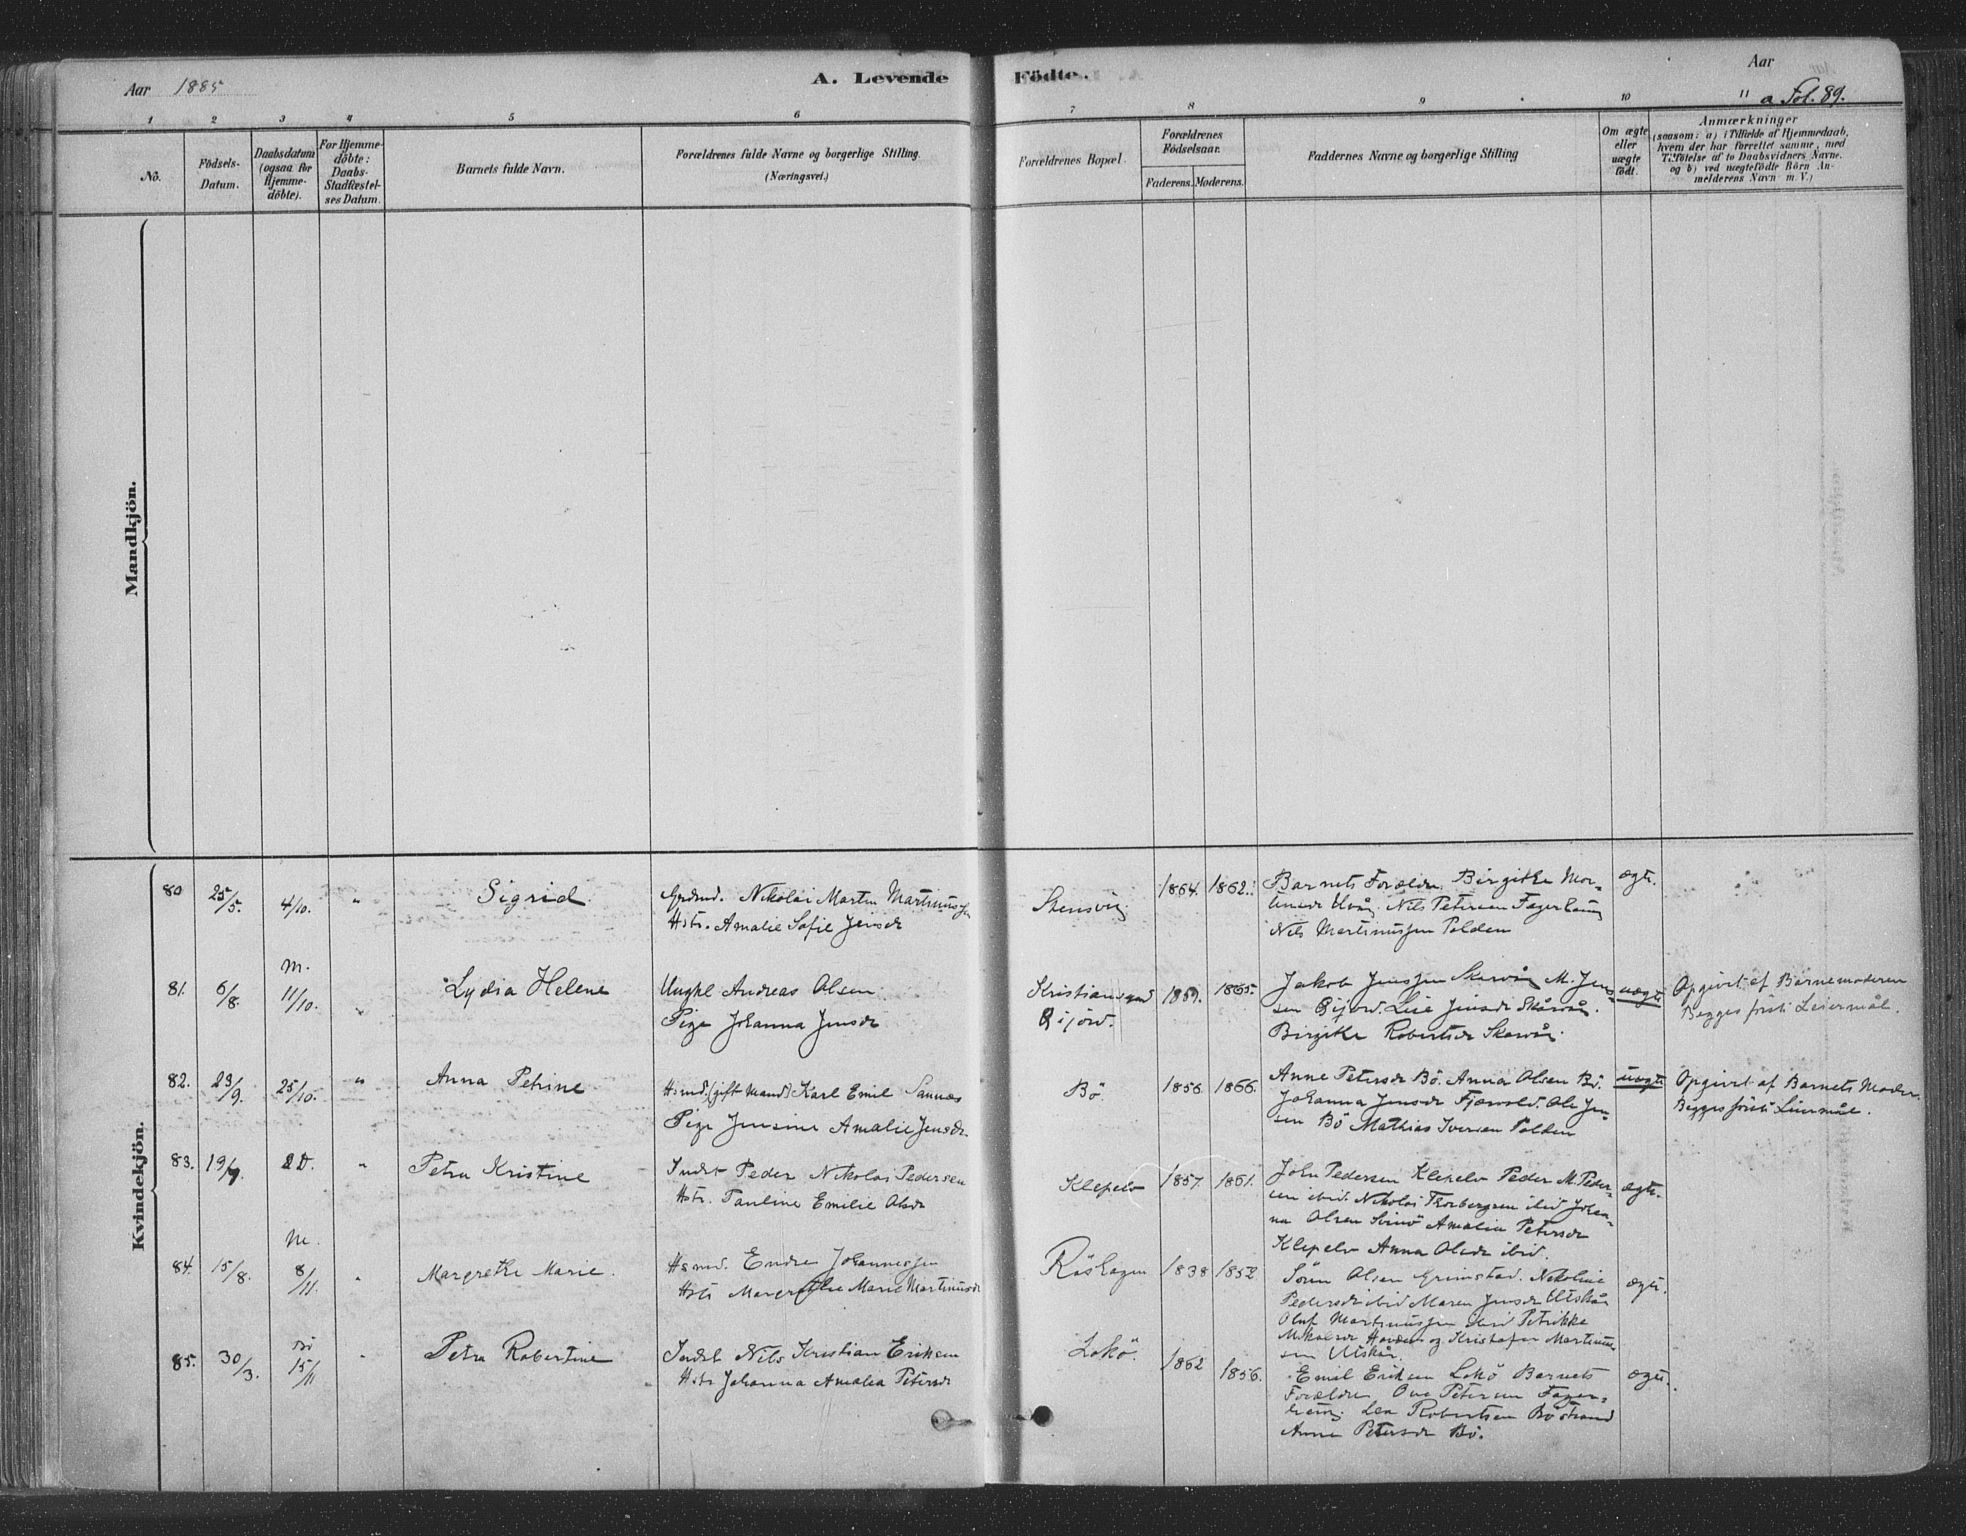 Aar 1885
A. Levende Födte.
Aar
a Fol. 89.
1 2 3 4 5 6 7 8 9 10 11
No.
Födsels-
Datum.
Daabsdatum
(ogsaa for
Hjemme-
döbte).
For Hjemme-
döbte:
Daabs-
Stadfæstel-
ses Datum.
Barnets fulde Navn.
Forældrenes fulde Navne og borgerlige Stilling
(Næringsvei.)
Forældrenes Bopæl.
Forældrenes
Födselsaar.
Faderens. Moderens.
Faddernes Navne og borgerlige Stilling
Om ægte
eller
uægte
födt.
Anmærkninger
(saasom: a) i Tilfælde af Hjemmedaab,
hvem der har forrettet samme, med
Tilföielse af to Daabsvidners Navne.
og b) ved uægtefödte Börn An-
melderens Navn m. V.)
Mandkjön.
Kvindekjön.
80 25/5. 4/10. " Sigrid.
Nikolai Martin Martinussen
Hstr. Amalie Sofie Jensdr
Stensvig
1864. 1862.
Barnets Forældre, Birgitte Mor-
Nils Petersen Fagerhaug
Nils Martinussen Polden
ægte.
81. 6/8. m. 11/10. " Lydia Helene
Ungkl Andreas Olsen
Pige Johanna Jensdr
Kristiansund
1859. 1865.
Jakob Jenssen M. Jens-
sen Lise Jensdr
Birgitte Robertsdr
uægte
Opgivet af Barnemoderen
Begges förste Leiermål.
82. 23/9. 25/10. " Anna Petrine
Hsmd. (gift Mand) Karl Emil Sannæs
Pige Jensine Amalie Jensdr.
Bö.
1856. 1866.
Anne Petersdr Bö. Anna Olsen Bö.
Johanna Jensdr Fjærvold. Ole Jen-
sen Bö Mathias Iversen Polden
uægte
Opgivet af Barnets Moder.
Begges förste Leiermål.
83. 19/9. 2 D. " Petra Kristine
Indst Peder Nikolai Pedersen
Hstr. Pauline Emilie Olsdr
Klepelv
1857. 1861.
John Pedersen Klepelv Peder M. Peder-
sen ibid. Nikolai Thorbergsen ibid Johan-
na Olsen Amalia Petersdr
Klepelv Anna Olsdr ibid.
ægte.
84. 15/8. m. 8/11. " Margrethe Marie.
Hsmd. Endre Johannessen
Hstr Margrethe Marie Martinusdr
Röshagen
1838 1852
Sören Olsen Grimstad. Nikoline
Pedersdr ibid Maren Jensdr Utskår
Oluf Martinussen ibid Petrikke
og Kristofer Martinus-
sen Utskår.
ægte.
85. 30/3. Bö 15/11 " Petra Robertine
Indst Nils Kristian Eriksen
Hstr Johanna Amalia Petersdr
Lokö.
1862 1856.
Emil Eriksen Lokö Barnets
Forældre, Ove Petersen Fager-
haug. Lea Robertsen Böstrand
Anne Petersdr Bö.
ægte.